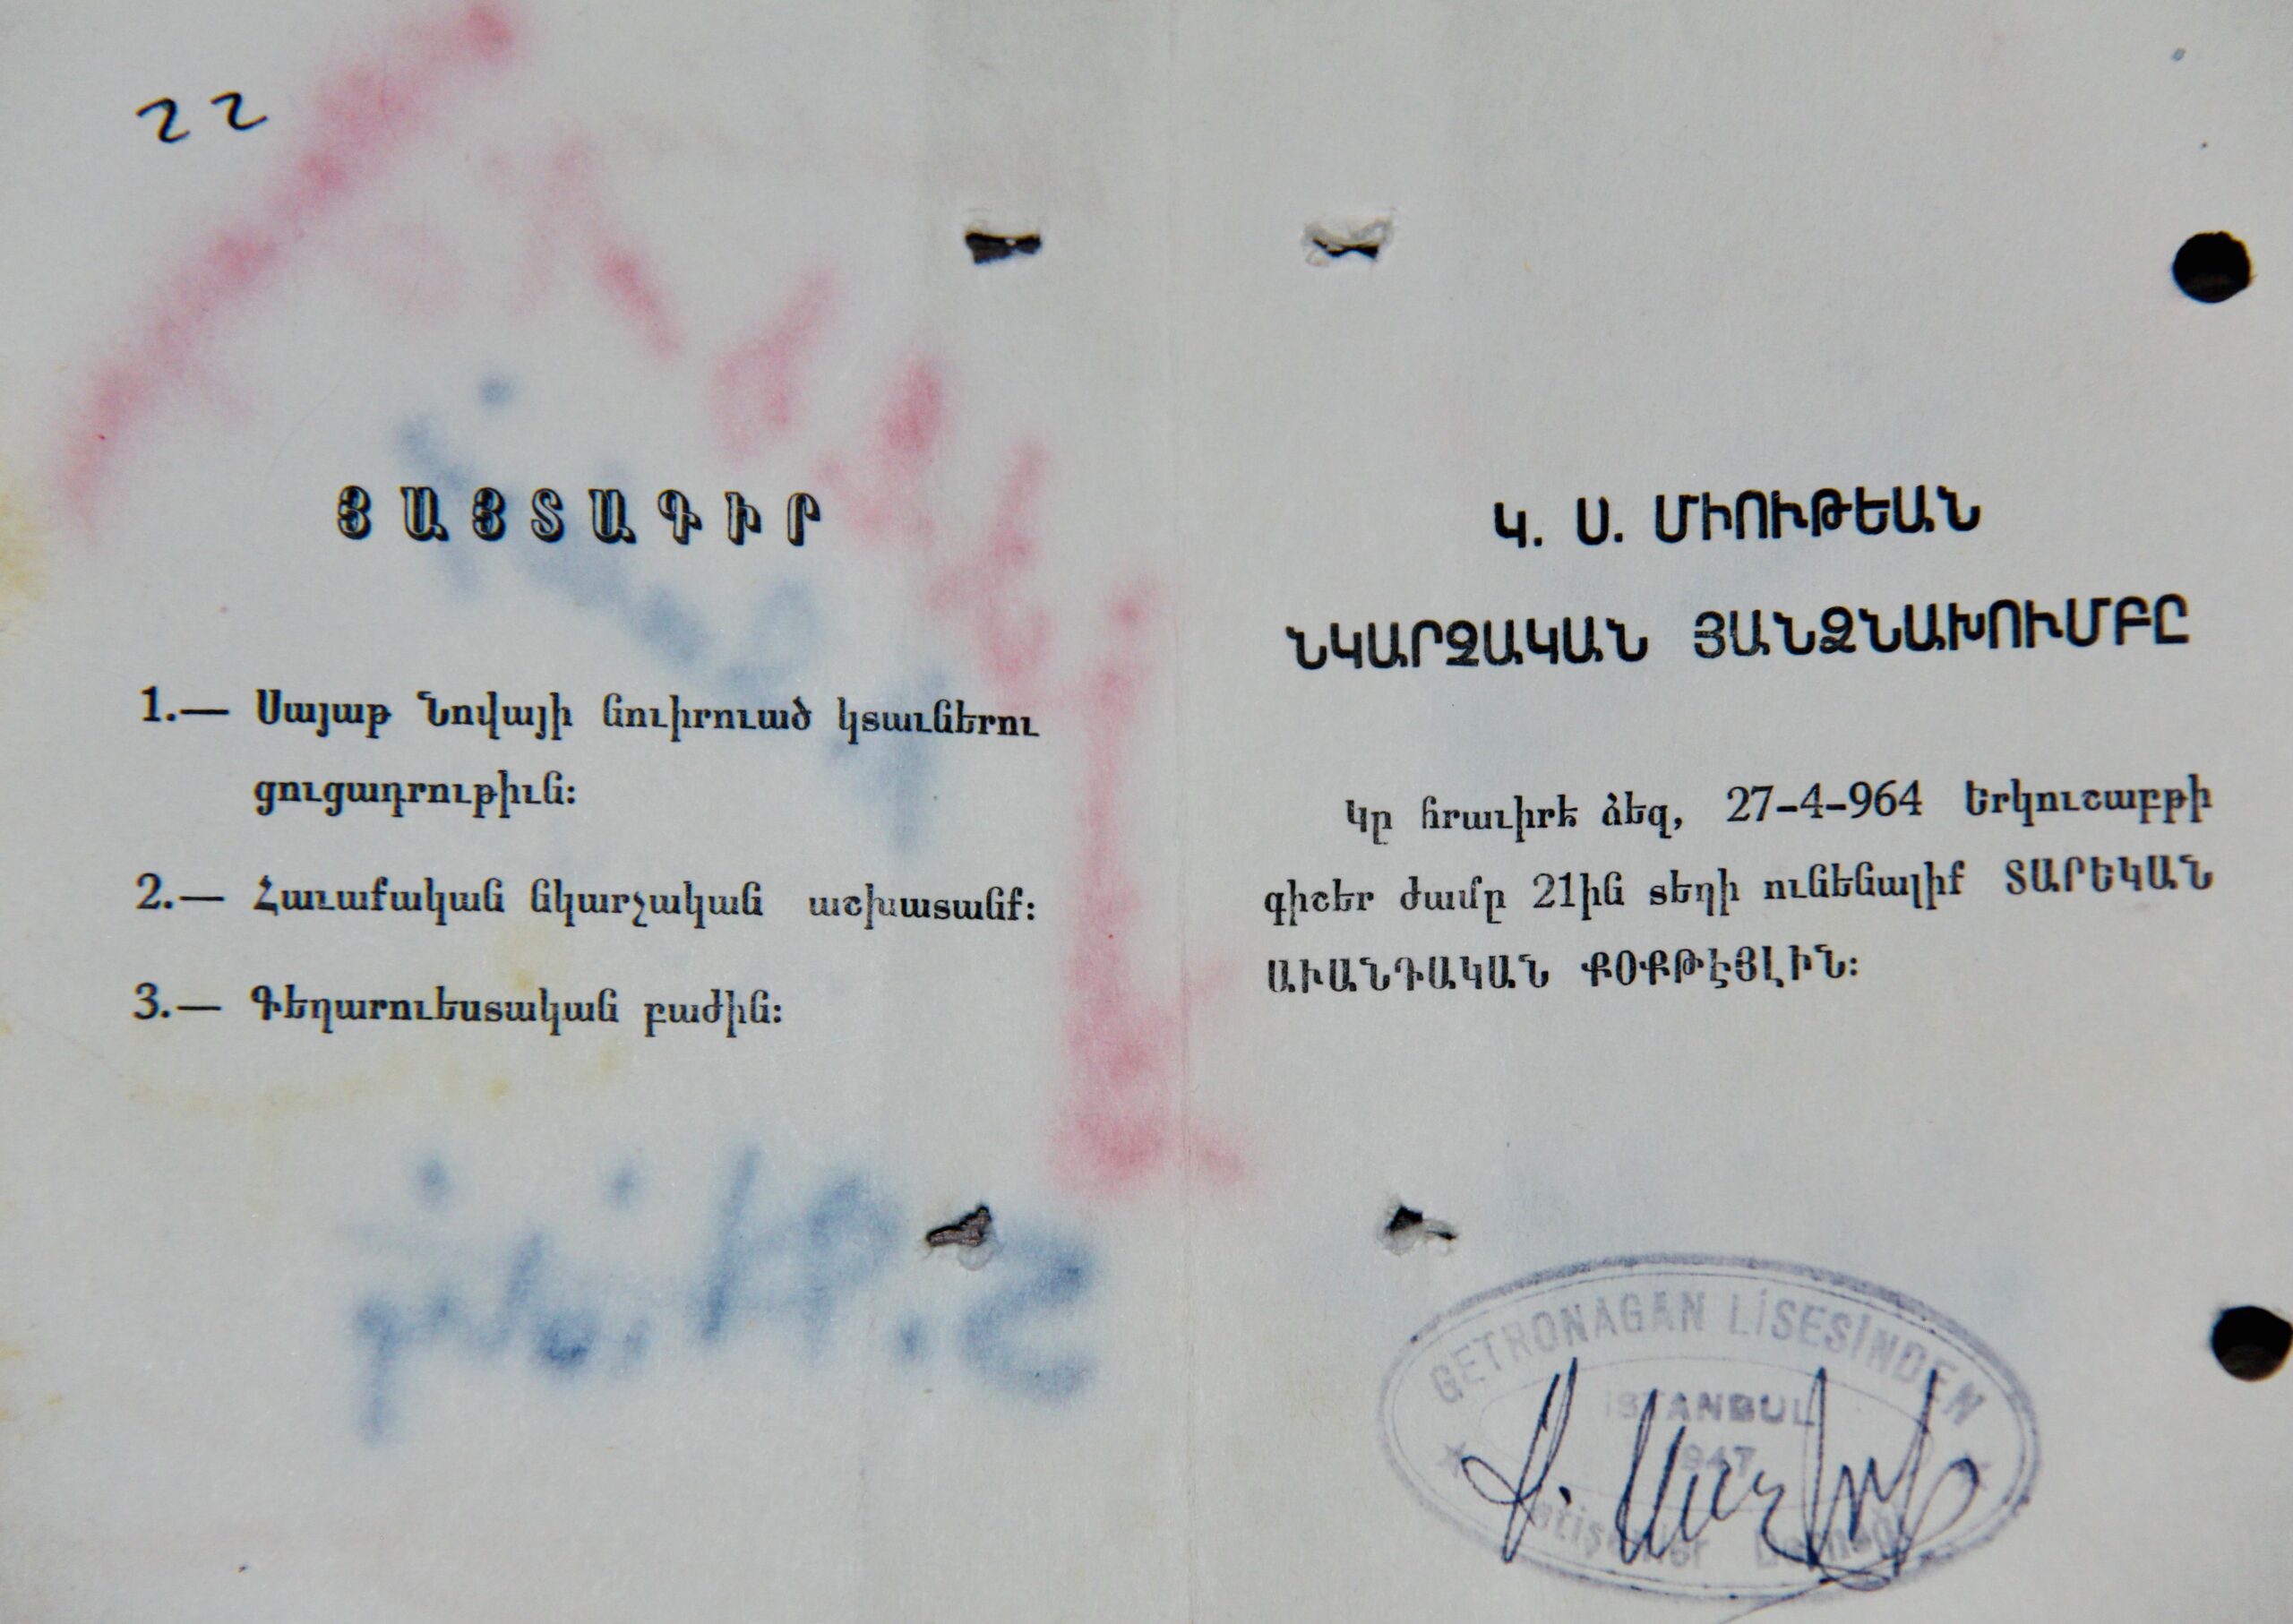 22
ՅԱՅՏԱԳԻՐ
1.— Սայաթ Նովայի նուիրուած կտաւներու
ցուցադրութիւն։
2.— Հաւաքական նկարչական աշխատանք։
3.— Գեղարուեստական բաժին։
Կ. Ս. ՄԻՈՒԹԵԱՆ
ՆԿԱՐՉԱԿԱՆ ՅԱՆՁՆԱԽՈՒՄԲԸ
Կը հրաւիրէ ձեզ, 27-4-964 Երկուշաբթի
գիշեր ժամը 21ին տեղի ունենալիք ՏԱՐԵԿԱՆ
ԱՒԱՆԴԱԿԱՆ ՔՕՔԹԷՅԼԻՆ։
GETRONAGAN LİSESİNDEN
İSTANBUL
1947